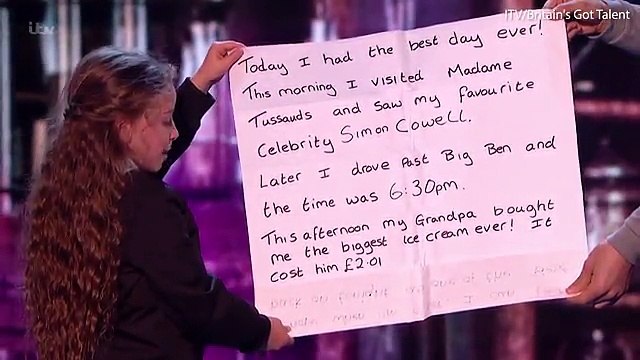 itv
ITV/Britain's Got Talent
Today I had the best day ever!
This morning I visited Madame
Tussauds and saw my favourite
Celebrity Simon Cowell.
Later I drove Past Big Ben and
the time was 6:30pm.
This afternoon my Grandpa bought
me the biggest Ice cream ever! It
cost him £2.01